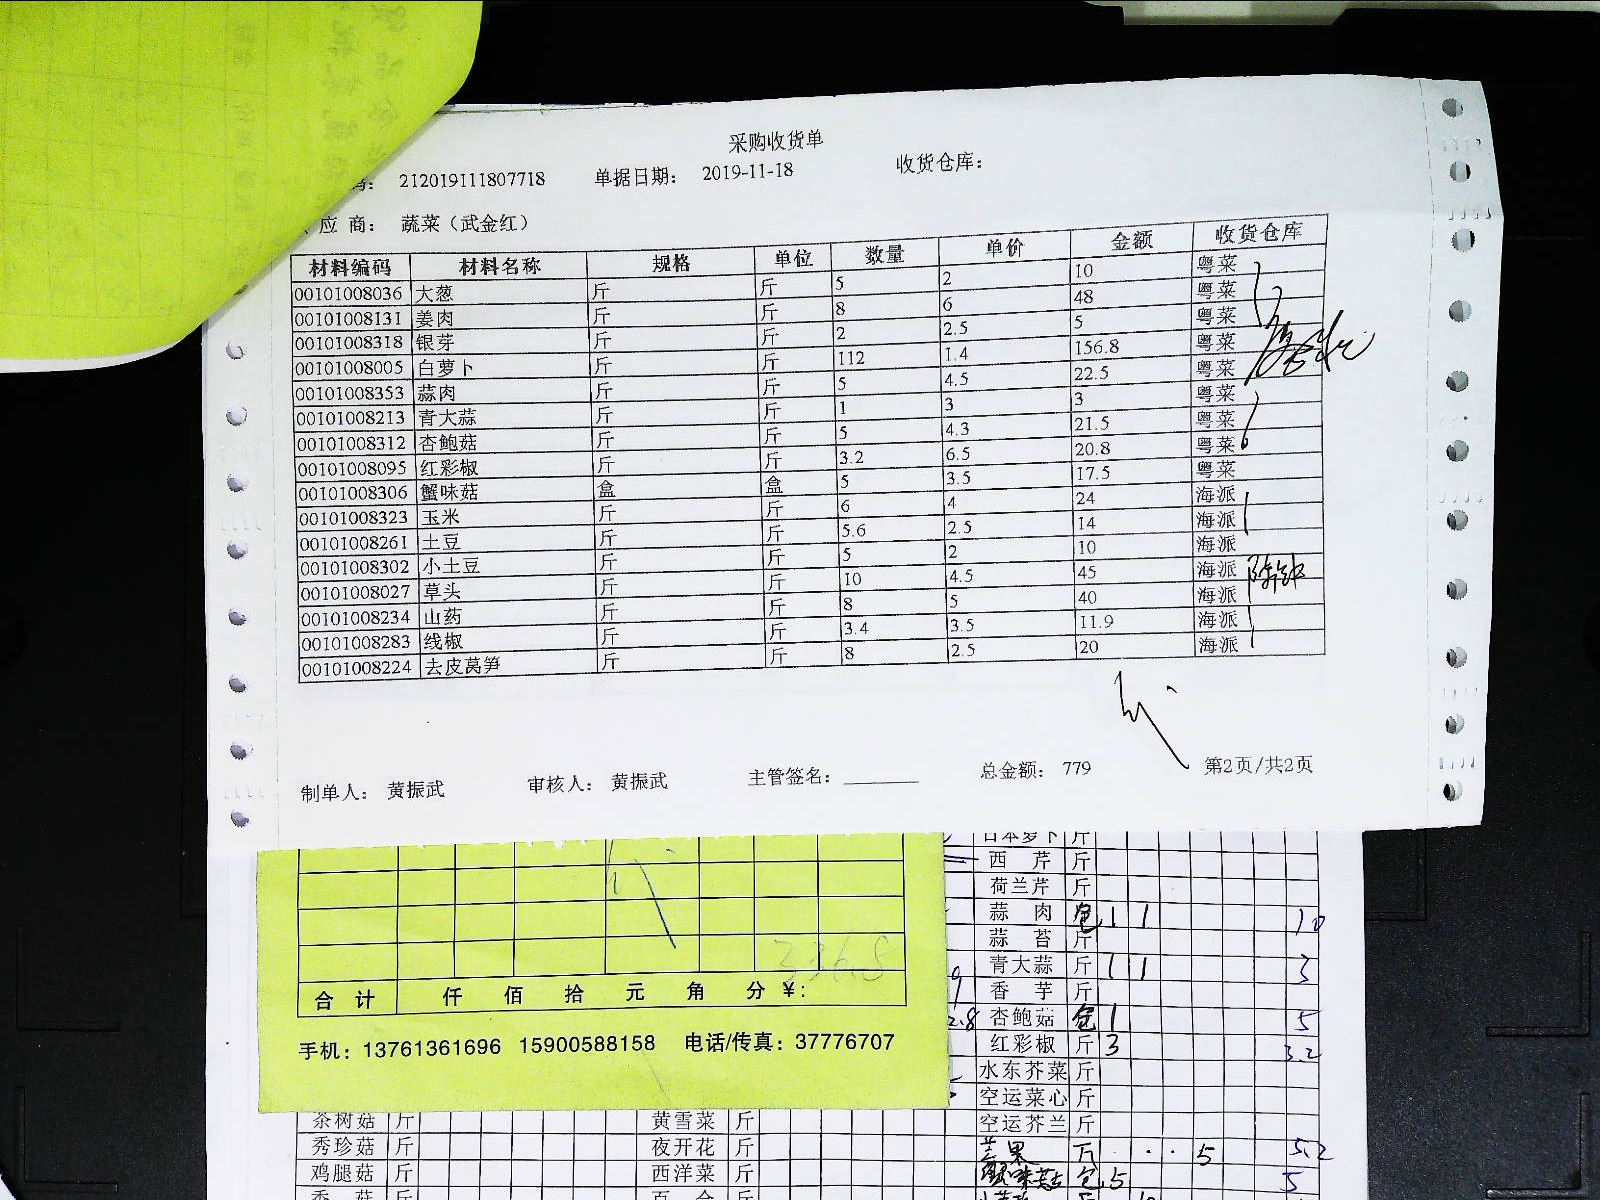 采购收货单
212019111807718 单据日期： 2019-11-18 收货仓库：
应 商： 蔬菜（武金红）
材料编码 材料名称 规格 单位 数量 单价 金额 收货仓库
00101008036 大葱 斤 斤 5 2 10 粤菜
00101008131 姜肉 斤 斤 8 6 48 粤菜
00101008318 银芽 斤 斤 2 2.5 5 粤菜
00101008005 白萝卜 斤 斤 112 1.4 156.8 粤菜
00101008353 蒜肉 斤 斤 5 4.5 22.5 粤菜
00101008213 青大蒜 斤 斤 1 3 3 粤菜
00101008312 杏鲍菇 斤 斤 5 4.3 21.5 粤菜
00101008095 红彩椒 斤 斤 3.2 6.5 20.8 粤菜
00101008306 蟹味菇 盒 盒 5 3.5 17.5 粤菜
00101008323 玉米 斤 斤 6 4 24 海派
00101008261 土豆 斤 斤 5.6 2.5 14 海派
00101008302 小土豆 斤 斤 5 2 10 海派
00101008027 草头 斤 斤 10 4.5 45 海派
00101008234 山药 斤 斤 8 5 40 海派
00101008283 线椒 斤 斤 3.4 3.5 11.9 海派
00101008224 去皮莴笋 斤 斤 8 2.5 20 海派
制单人： 黄振武 审核人： 黄振武 主管签名： 总金额： 779 第2页/共2页
日本萝卜 斤
西 芹 斤
荷兰芹 斤
蒜 肉 包 1 1 10
蒜 苔 斤
336.8
青大蒜 斤 1 1 3
合 计 仟 佰 拾 元 角 分 ￥：
香 芋 斤
2.8 杏鲍菇 包 1 5
手机：13761361696 15900588158 电话/传真：37776707
红彩椒 斤 3 3.2
水东芥菜 斤
空运菜心 斤
茶树菇 斤 黄雪菜 斤 空运芥兰 斤
秀珍菇 斤 夜开花 斤 5 5.2
鸡腿菇 斤 西洋菜 斤 蟹味菇 包 5 5